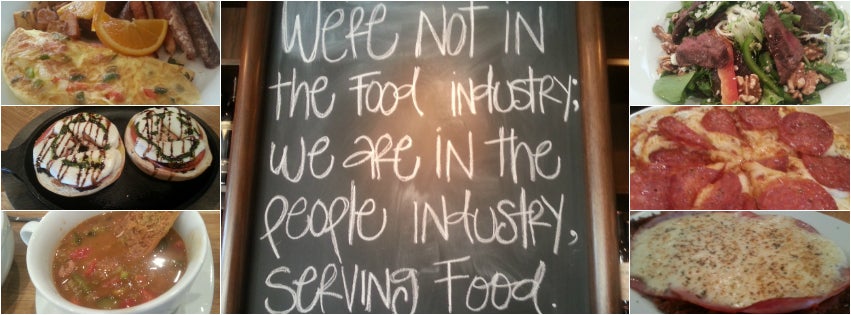 WERE NOT IN
the FOOD INDUSTRY;
WE ARE IN the
PEOPLE INDUSTRY,
SERVING FOOD.